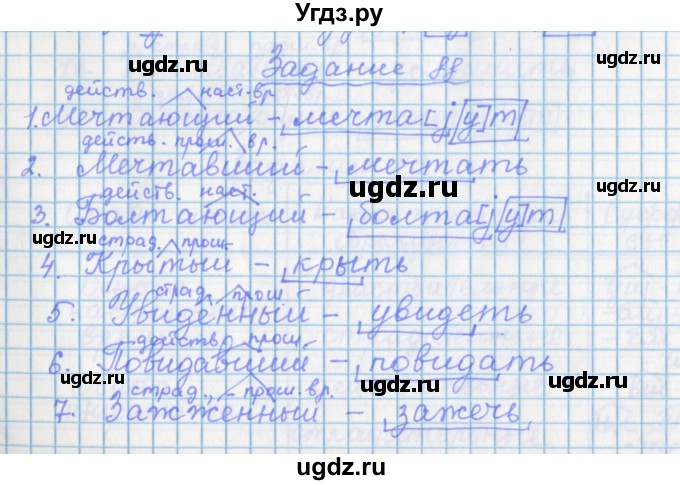 Угдз.ру
Задание 88
действ. наст. вр
1. Мечтающий - мечта[j[у]т]
действ. прош. вр.
2. Мечтавший - мечтать
действ. наст.
3. Болтающий - болта[j[у]т]
страд. прош.
4. Крытый - крыть
страд, прош
5. Увиденный - увидеть
действ, прош.
6. Повидавший - повидать
страд., - прош. вр.
7. Зажженный - зажечь
uqdz.ru
uqdz.ru
uqdz.ru
uqdz.ru
uqdz.ru
uqdz.ru
uqdz.ru
uqdz.ru
uqdz.ru